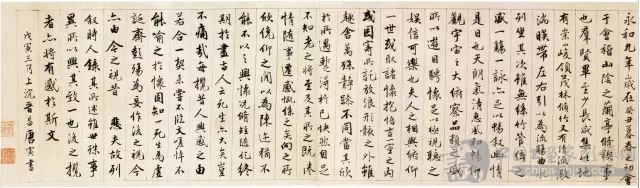 永和九年歲在癸丑暮春初會
于會稽山陰之蘭亭脩稧事
也群賢畢至少長咸集此地
有崇山峻領茂林脩竹又有清流激
湍暎帶左右引以為流觴曲水
列坐其次雖無絲竹管弦之
盛一觴一詠亦足以暢敘幽情
是日也天朗氣清惠風和暢仰
觀宇宙之大俯察品類之盛
所以遊目騁懷足以極視聽之
娛信可樂也夫人之相與俯仰
一世或取諸懷抱悟言一室之內
或因寄所託放浪形骸之外雖
趣舍萬殊靜躁不同當其欣
於所遇蹔得於己快然自足不
知老之將至及其所之既惓
情隨事遷感慨係之矣向之所
欣俛仰之間以為陳迹猶不
能不以之興懷況脩短隨化終
期於盡古人云死生亦大矣豈
不痛哉每攬昔人興感之由
若合一契未嘗不臨文嗟悼不
能喻之於懷固知一死生為虛
誕齊彭殤為妄作後之視今
亦由今之視昔 悲夫故列
敘時人錄其所述雖世殊事
異所以興懷其致一也後之攬
者亦將有感於斯文
戊寅三月上沉晉昌唐寅書